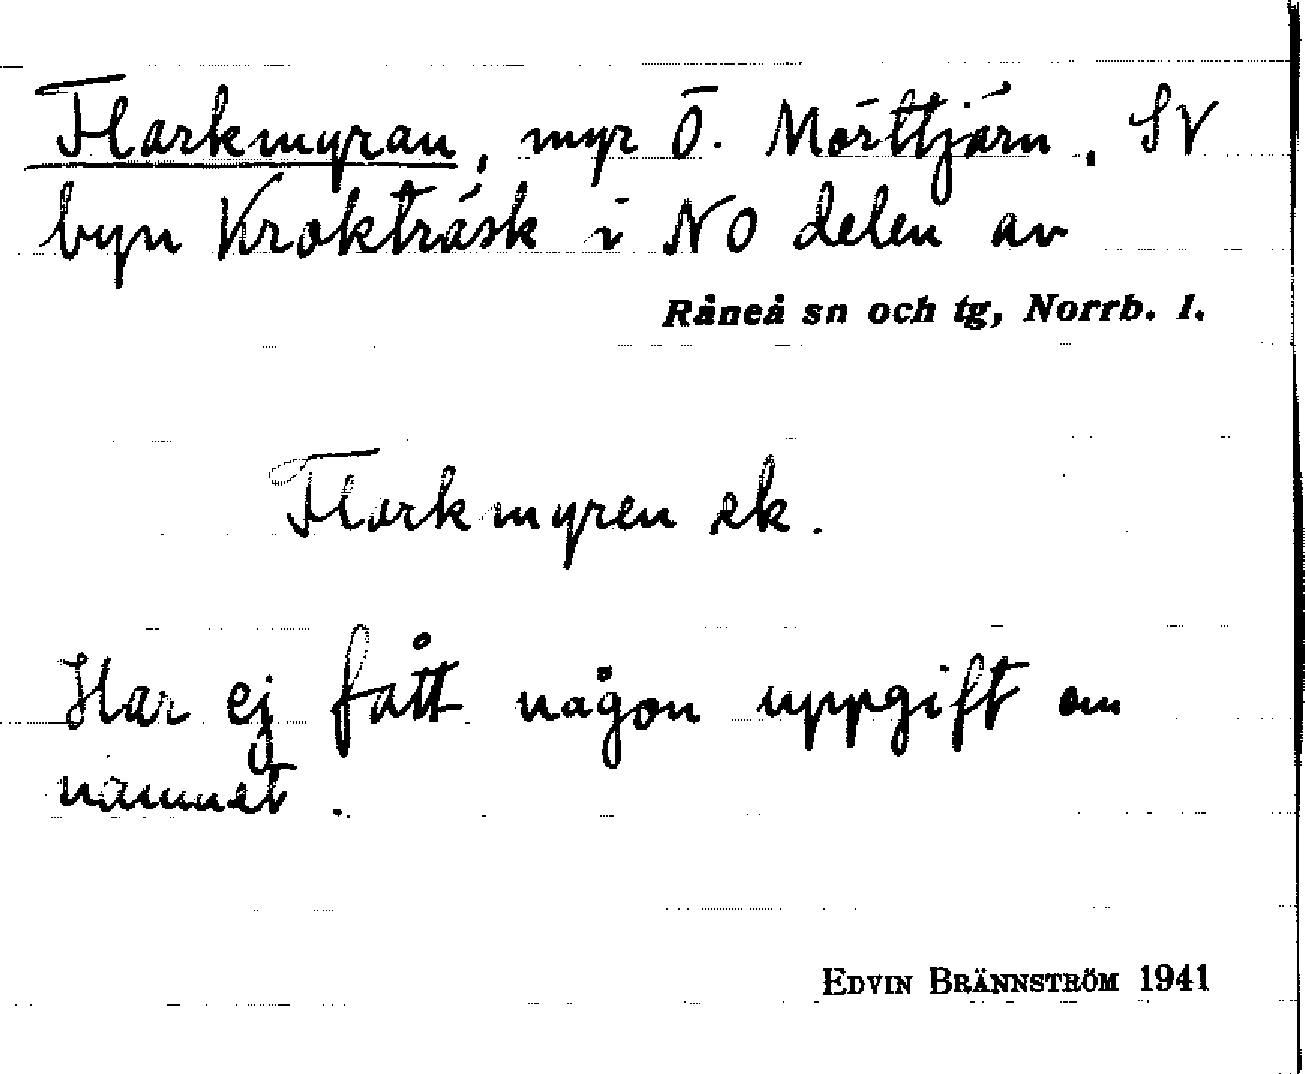 Flarkmyran, myr Ö. Mörttjärn, SV
byn Krokträsk i NO delen av
Råneå sn och tg, Norrb. l.
Flarkmyren ek.
Har ej fått någon uppgift om
namnet.
EDVIN BRÄNNSTRÖM 1941